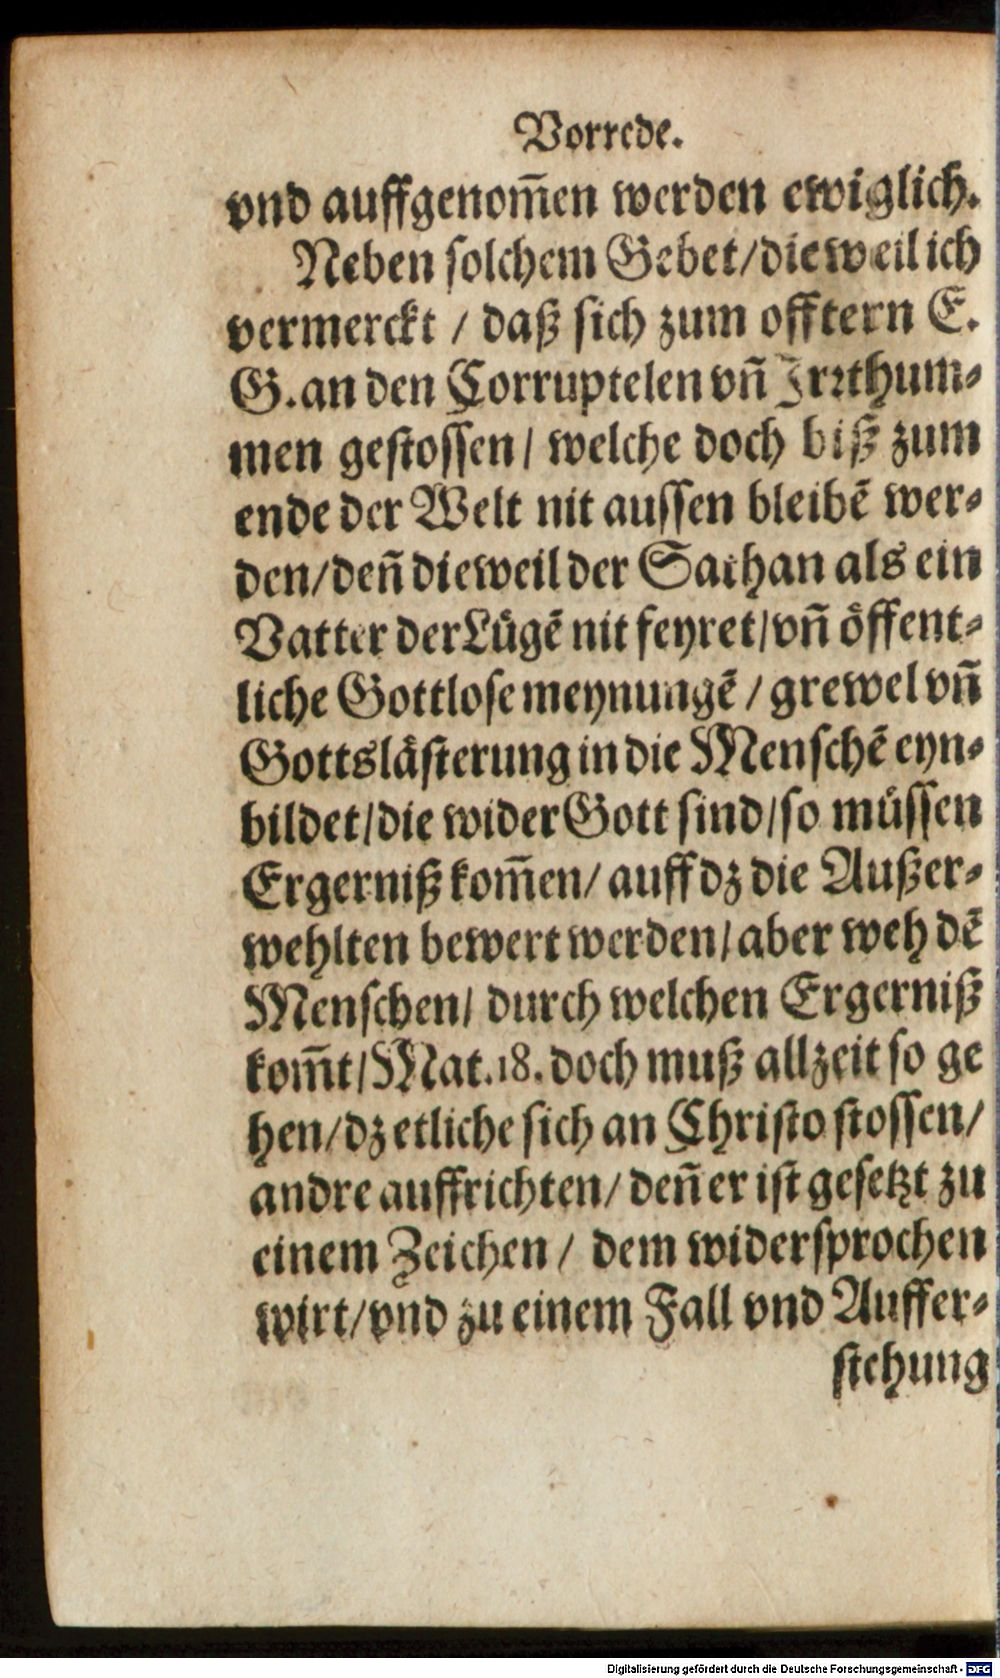 Vorrede.
vnd auffgenom̃en werden ewiglich.
Neben solchem Gebet/dieweil ich
vermerckt / daß sich zum offtern E.
G. an den Corruptelen vñ Irrthum-
men gestossen/ welche doch biß zum
ende der Welt nit aussen bleibẽ wer-
den/deñ dieweil der Sathan als ein
Vatter der Lügẽ nit feyret/vñ öffent-
liche Gottlose meynungẽ / grewel vñ
Gottslästerung in die Menschẽ eyn-
bildet/die wider Gott sind/so müssen
Ergerniß kom̃en/ auff dz die Außer-
wehlten bewert werden/aber weh dẽ
Menschen/ durch welchen Ergerniß
kom̃t/Mat.18. doch muß allzeit so ge
hen/dz etliche sich an Christo stossen/
andre auffrichten/ deñ er ist gesetzt zu
einem Zeichen / dem widersprochen
wirt/vnd zu einem Fall vnd Auffer-
stehung
Digitalisierung gefördert durch die Deutsche Forschungsgemeinschaft - DFG